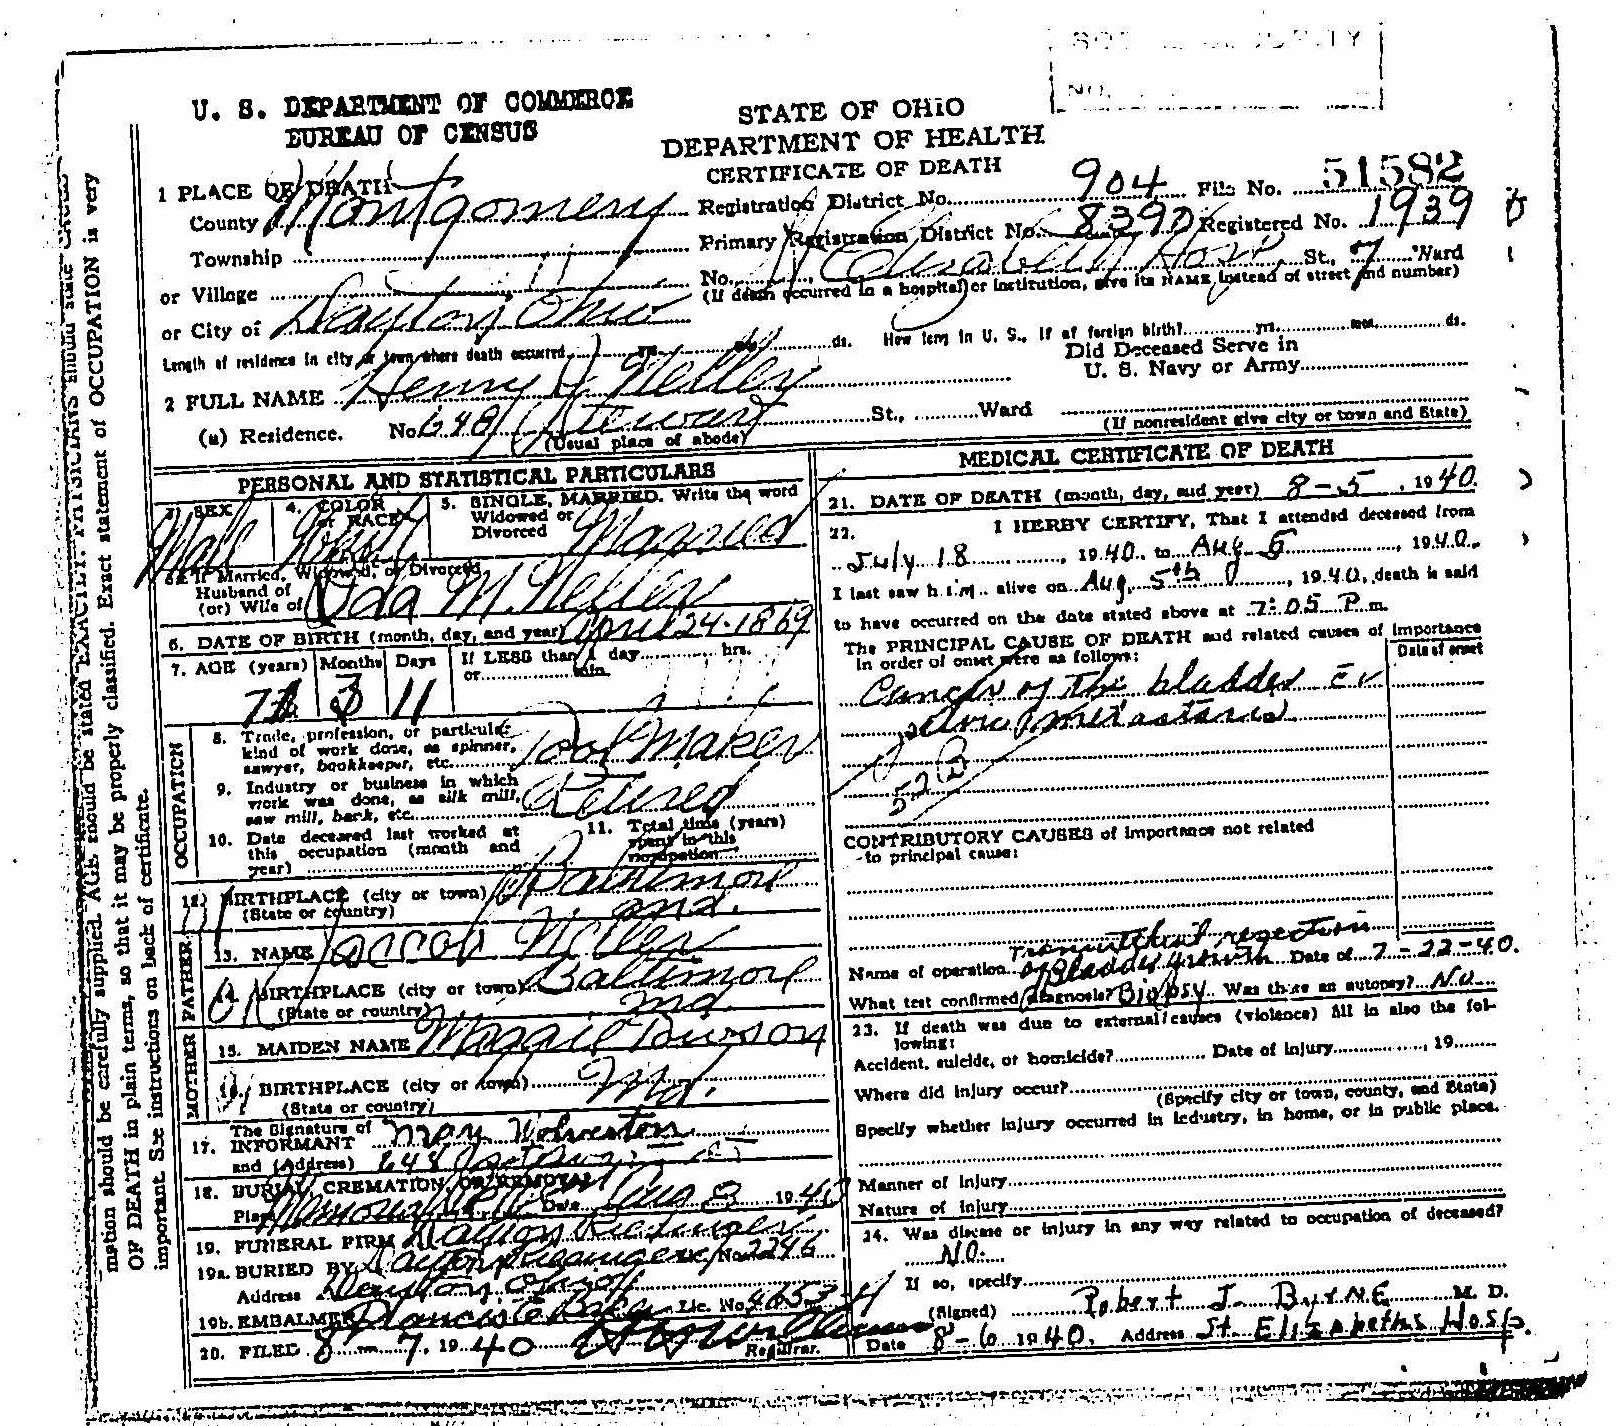 U. S. DEPARTMENT OF COMMERCE
BUREAU OF CENSUS
STATE OF OHIO
DEPARTMENT OF HEALTH
CERTIFICATE OF DEATH
NO.
1 PLACE OF DEATH
County Montgomery
Township
or Village
or City of Dayton, Ohio
Registration District No. 904 File No. 51582
Primary Registration District No. 8390 Registered No. 1939
No. St. Elizabeth Hosp. St., 7 Ward
(If death occurred in a hospital or institution, give its NAME instead of street and number)
Length of residence in city or town where death occurred yrs. mos. ds. How long in U. S., if of foreign birth? yrs. mos. ds.
Did Deceased Serve in
U. S. Navy or Army
2 FULL NAME Henry J. Neller
(a) Residence. No. 648 Stewart St., Ward
(Usual place of abode) (If nonresident give city or town and State)
PERSONAL AND STATISTICAL PARTICULARS
3. SEX Male
4. COLOR or RACE White
5. SINGLE, MARRIED. Write the word
Widowed or
Divorced Married
If Married, Widowed, or Divorced
Husband of
(or) Wife of Ida M. Neller
6. DATE OF BIRTH (month, day, and year) April 24-1869
7. AGE (years) Months Days If LESS than 1 day hrs.
or min.
71 3 11
OCCUPATION
8. Trade, profession, or particular
kind of work done, as spinner,
sawyer, bookkeeper, etc. Tool Maker
9. Industry or business in which
work was done, as silk mill,
saw mill, bank, etc. Retired
10. Date deceased last worked at
this occupation (month and
year)
11. Total time (years)
spent in this
occupation
12. BIRTHPLACE (city or town) Baltimore
(State or country) Md.
FATHER
13. NAME Jacob Neller
14. BIRTHPLACE (city or town) Baltimore
(State or country) Md.
MOTHER
15. MAIDEN NAME Maggie Towson
16. BIRTHPLACE (city or town) Md.
(State or country)
The Signature of
17. INFORMANT May Wolverton
and (Address) 648
18. BURIAL, CREMATION OR REMOVAL
Place Memorial Date Aug 8 1940
19. FUNERAL FIRM
19a. BURIED BY Lic. No. 2246
Address Dayton Ohio
19b. EMBALMER Francis Lic. No. 4653-A
20. FILED 8-7, 1940
Registrar.
MEDICAL CERTIFICATE OF DEATH
21. DATE OF DEATH (month, day, and year) 8-5, 1940.
22. I HERBY CERTIFY, That I attended deceased from
July 18, 1940, to Aug 5, 1940.
I last saw him alive on Aug. 5th, 1940, death is said
to have occurred on the date stated above at 7:05 P.m.
The PRINCIPAL CAUSE OF DEATH and related causes of importance
in order of onset were as follows:
Date of onset
Cancer of the bladder
metastasis
52B
CONTRIBUTORY CAUSES of importance not related
to principal cause:
Name of operation Transurethral resection of Bladder growth Date of 7-22-40.
What test confirmed diagnosis? Biopsy Was there an autopsy? No
23. If death was due to external causes (violence) fill in also the fol-
lowing:
Accident, suicide, or homicide? Date of injury, 19
Where did injury occur?
(Specify city or town, county, and State)
Specify whether injury occurred in industry, in home, or in public place.
Manner of injury
Nature of injury
24. Was disease or injury in any way related to occupation of deceased?
No.
If so, specify
(Signed) Robert J. Byrne M. D.
Date 8-6 1940. Address St. Elizabeths Hosp.
mation should be carefully supplied. AGE should be stated EXACTLY. PHYSICIANS should state CAUSE
OF DEATH in plain terms, so that it may be properly classified. Exact statement of OCCUPATION is very
important. See instructions on back of certificate.